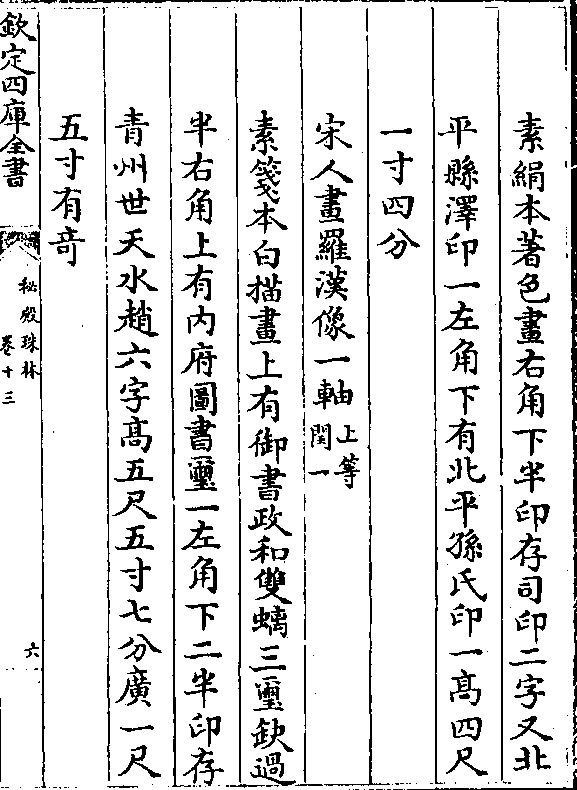 素絹本著色畫右角下半印存司印二字又北
平縣澤印一左角下有北平孫氏印一高四尺
一寸四分
宋人畫羅漢像一軸上等
閏一
素箋本白描畫上有御書政和雙螭三璽鈌過
半右角上有内府圖書璽一左角下二半印存
青州世天水趙六字高五尺五寸七分廣一尺
五寸有竒
欽定四庫全書
秘殿珠林
卷十三
六